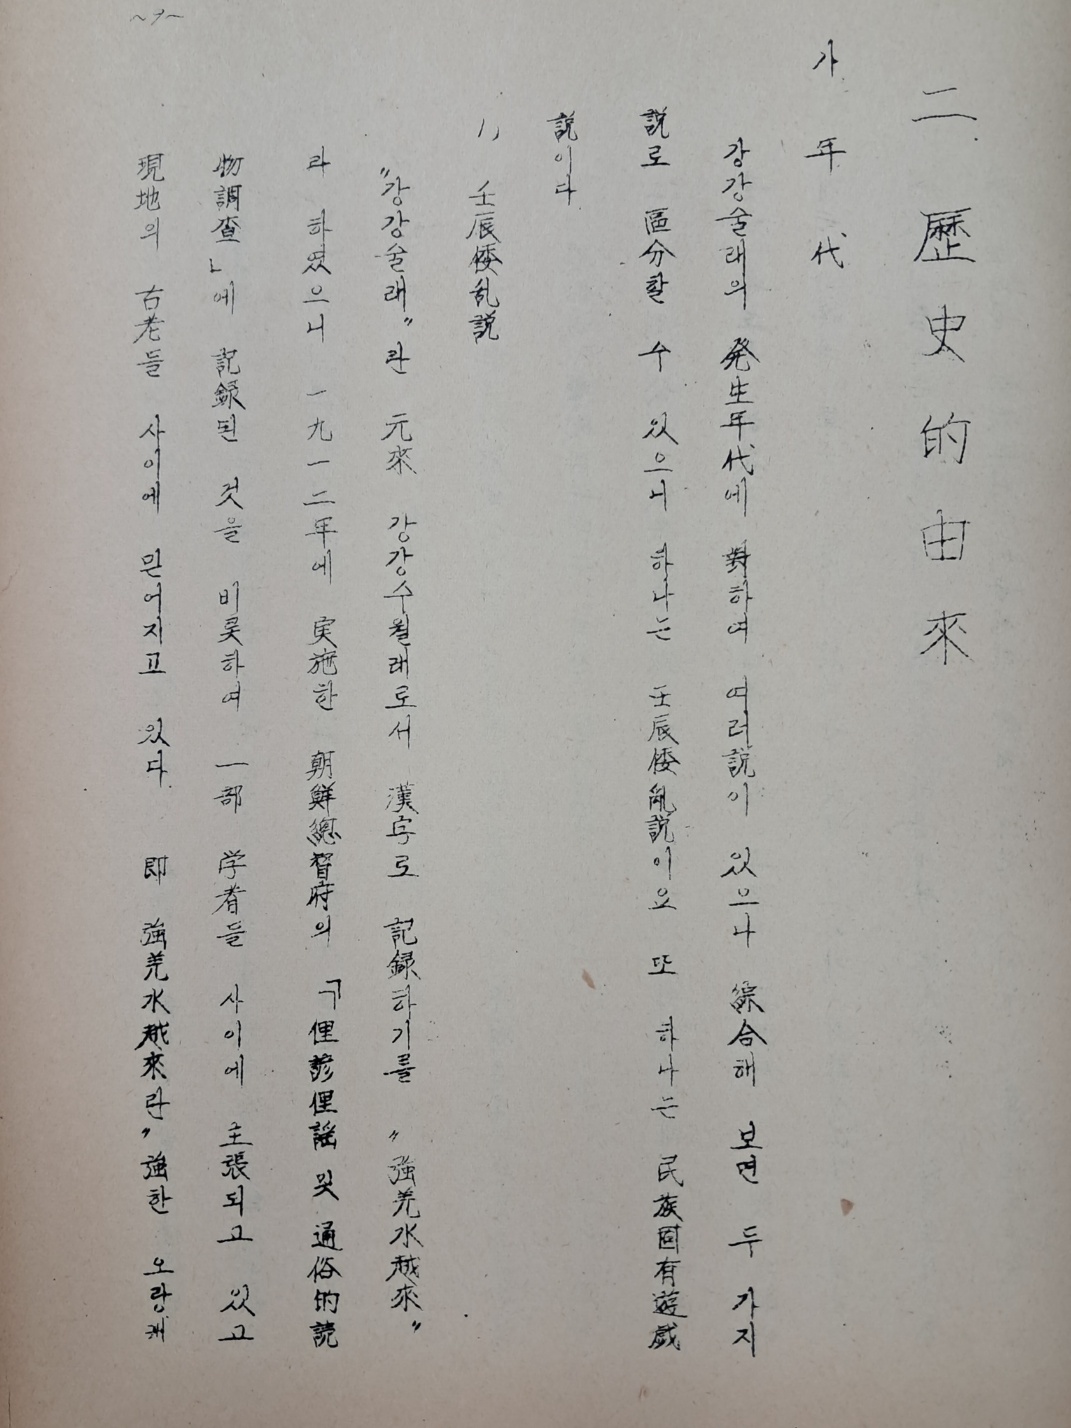 ~9~
二 歷史的由來
가 年代
강강술래의 発生年代에 對하여 여러説이 있으나 綜合해 보면 두 가지
説로 區分할 수 있으니 하나는 壬辰倭亂説이요 또 하나는 民族固有遊戱
説이다
1) 壬辰倭乱説
"강강술래"란 元來 강강수월래로서 漢字로 記録하기를 "強羌水越來"
라 하였으니 一九一二年에 実施한 朝鮮總督府의 「俚諺俚謡 및 通俗的読
物調査」에 記録된 것을 비롯하여 一部 学者들 사이에 主張되고 있고
現地의 古老들 사이에 믿어지고 있다. 即 強羌水越來란" 強한 오랑캐